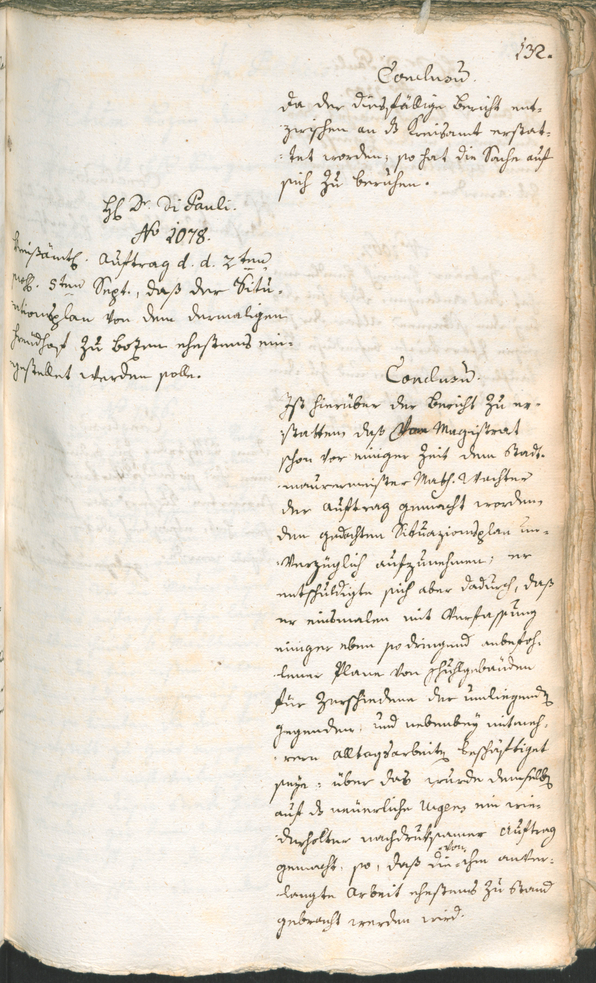 132.
Conclusum.
Da der diesfällige Bericht ent-
zwischen an ds Kreisamt erstat-
-tet worden, so hat die Sache auf
sich zu beruhen.
H Dr. Di Pauli.
No 1078.
Kreißämtl. Auftrag d. d. 2ten
5ten Sept., daß der Situ-
ationsplan von dem dermaligen
zu Bozen ehestens ein-
gestellet werden solle.
Conclusum.
Ist hierüber der Bericht zu er-
statten, daß Magistrat
schon vor einiger Zeit dem Stadt-
maurermeister Math. Wachter
der Auftrag gemacht worden,
den gedachten Situazionsplan un-
verzüglich aufzunehmen; er
entschuldigte sich aber dadurch, daß
er einsmalen mit Verfassung
einiger eben so dringend anbefoh-
lener Plane von Schuhlgebäuden
für Zerschiedene der umliegenden
Gegenden, und nebenbey mit meh-
rern Alltagsarbeiten beschäftiget
seye; über das wurde demselben
auf ds neuerliche Urgens ein wie-
derholter nachdruksamer Auftrag
gemacht, so, daß die von ihm anver-
langte Arbeit ehestens zu Stand
gebracht werden wird.